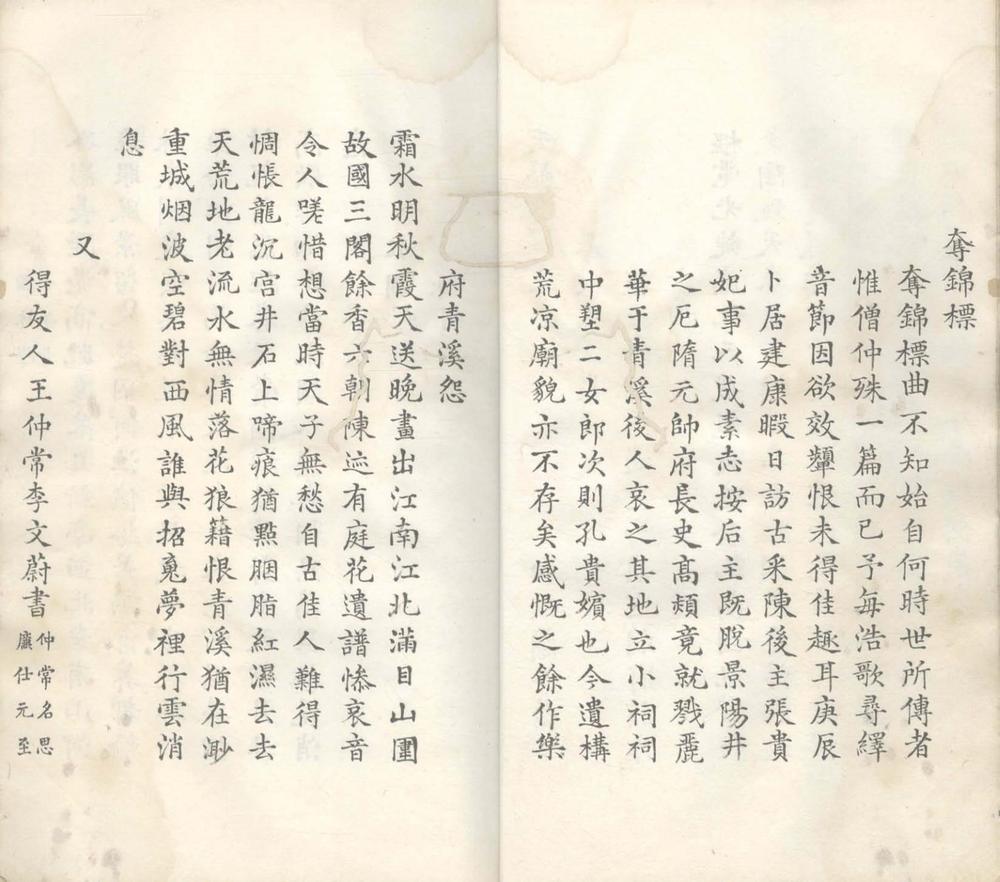 奪錦標
奪錦標曲不知始自何時世所傳者
惟僧仲殊一篇而已予每浩歌尋繹
音節因欲效顰恨未得佳趣耳庚辰
卜居建康暇日訪古采陳後主張貴
妃事以成素志按后主既脫景陽井
之厄隋元帥府長史高熲竟就戮麗
華于青溪後人哀之其地立小祠祠
中塑二女郎次則孔貴嬪也今遺構
荒凉廟貌亦不存矣感慨之餘作樂
府青溪怨
霜水明秋霞天送晚畫出江南江北滿目山圍
故國三閣餘香六朝陳迹有庭花遺譜慘哀音
令人嗟惜想當時天子無愁自古佳人難得
惆悵龍沉宫井石上啼痕猶點胭脂紅濕去去
天荒地老流水無情落花狼籍恨青溪猶在渺
重城烟波空碧對西風誰與招䰟夢裡行雲消
息
又
得友人王仲常李文蔚書仲常名思
廉仕元至